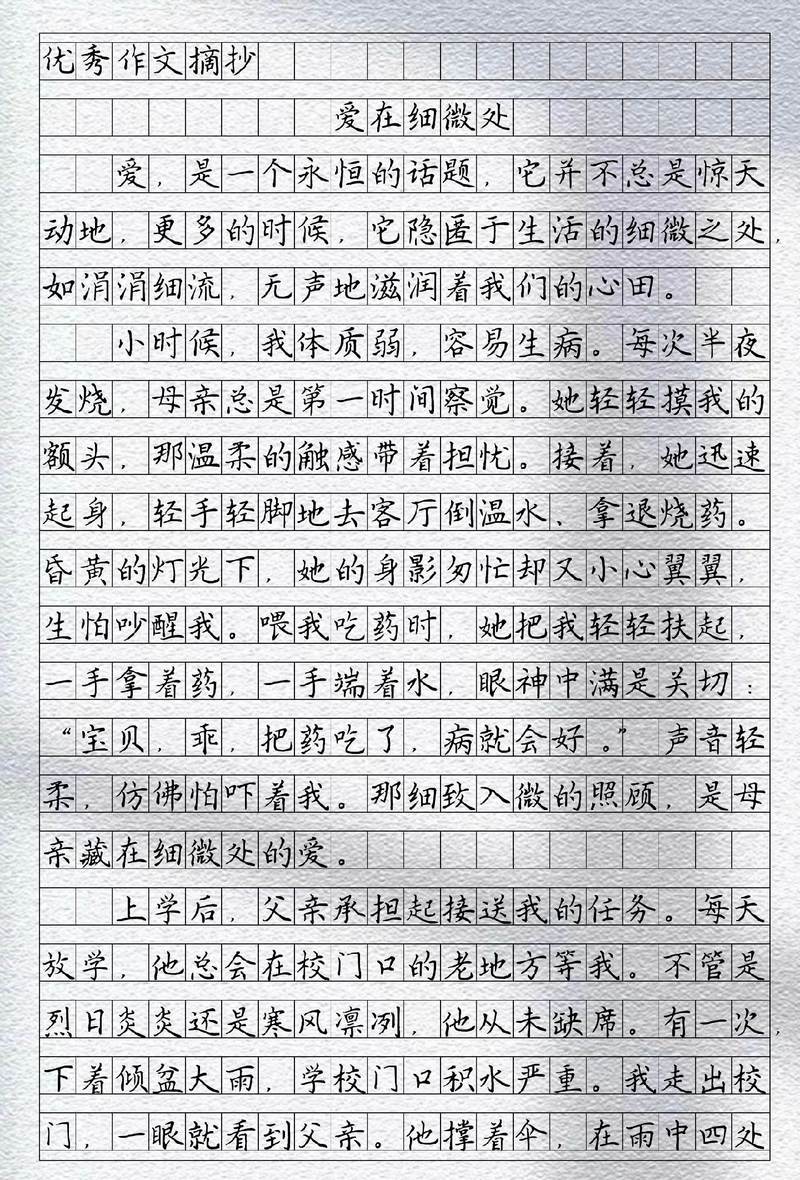 优秀作文摘抄
爱在细微处
爱，是一个永恒的话题，它并不总是惊天
动地，更多的时候，它隐匿于生活的细微之处，
如涓涓细流，无声地滋润着我们的心田。
小时候，我体质弱，容易生病。每次半夜
发烧，母亲总是第一时间察觉。她轻轻摸我的
额头，那温柔的触感带着担忧。接着，她迅速
起身，轻手轻脚地去客厅倒温水、拿退烧药。
昏黄的灯光下，她的身影匆忙却又小心翼翼，
生怕吵醒我。喂我吃药时，她把我轻轻扶起，
一手拿着药，一手端着水，眼神中满是关切：
“宝贝，乖，把药吃了，病就会好。”声音轻
柔，仿佛怕吓着我。那细致入微的照顾，是母
亲藏在细微处的爱。
上学后，父亲承担起接送我的任务。每天
放学，他总会在校门口的老地方等我。不管是
烈日炎炎还是寒风凛冽，他从未缺席。有一次，
下着倾盆大雨，学校门口积水严重。我走出校
门，一眼就看到父亲。他撑着伞，在雨中四处